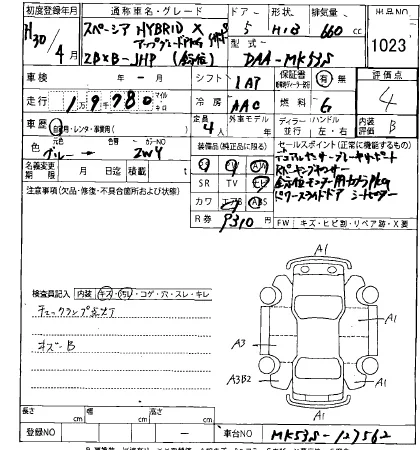 初度登録年月 通称車名・グレード ドア 形状 排気量 出品NO
H30 / 4月 スペーシア HYBRID X 5 H/B 660 cc 1023
アップグレードPKG
ZBXB-JHP (全方位) 型式 DAA-MK53S
車検 年 - 月 シフト IAT 保証書 有・無 評価点
走行 19780 マイル キロ 冷房 AAC 燃料 G 4
車歴 自家用・レンタ・事業用( ) 定員 4人 外車モデル ディーラー 並行 ハンドル 左・右 内装 B
色 元色 ブルー → カラーNO ZW4
装備品(純正品に限る) セールスポイント(正常に機能するもの)
PS PW AW デュアルセンサーブレーキサポート
名義変更期限 月 日迄 積載 t SR TV ナビ Rパーキングセンサー
注意事項(欠品・修復・不具合箇所および状態) 全方位モニター用カメラPKG
カワ エアB ABS P.スライドドア シートヒーター
R券 9310円 FW キズ・ヒビ割・リペア跡・X要
A1
検査員記入 内装 キズ・汚レ・コゲ・穴・スレ・キレ
チェックランプ点灯 A1
A3 A1
ホズーB
A3B2 A1
A1
長さ cm 幅 cm 高さ cm
登録NO 車台NO MK53S-127562